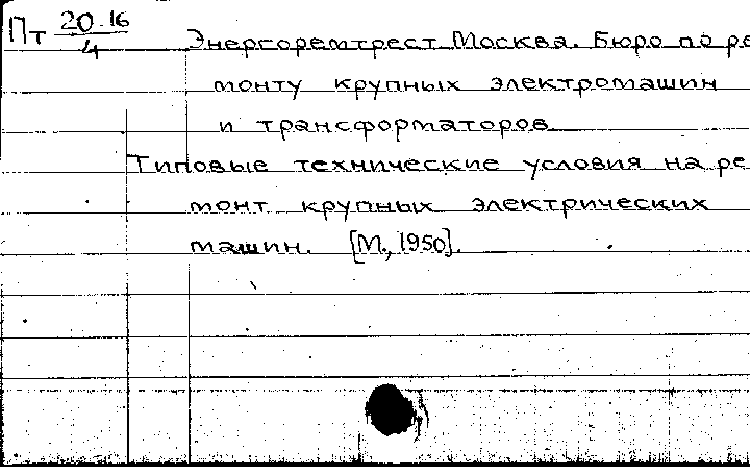 Пт 20.16/4
Энергоремтрест Москва. Бюро по ре
монту крупных электромашин
и трансформаторов
Типовые технические условия на ре
монт крупных электрических
машин. [М., 1950].